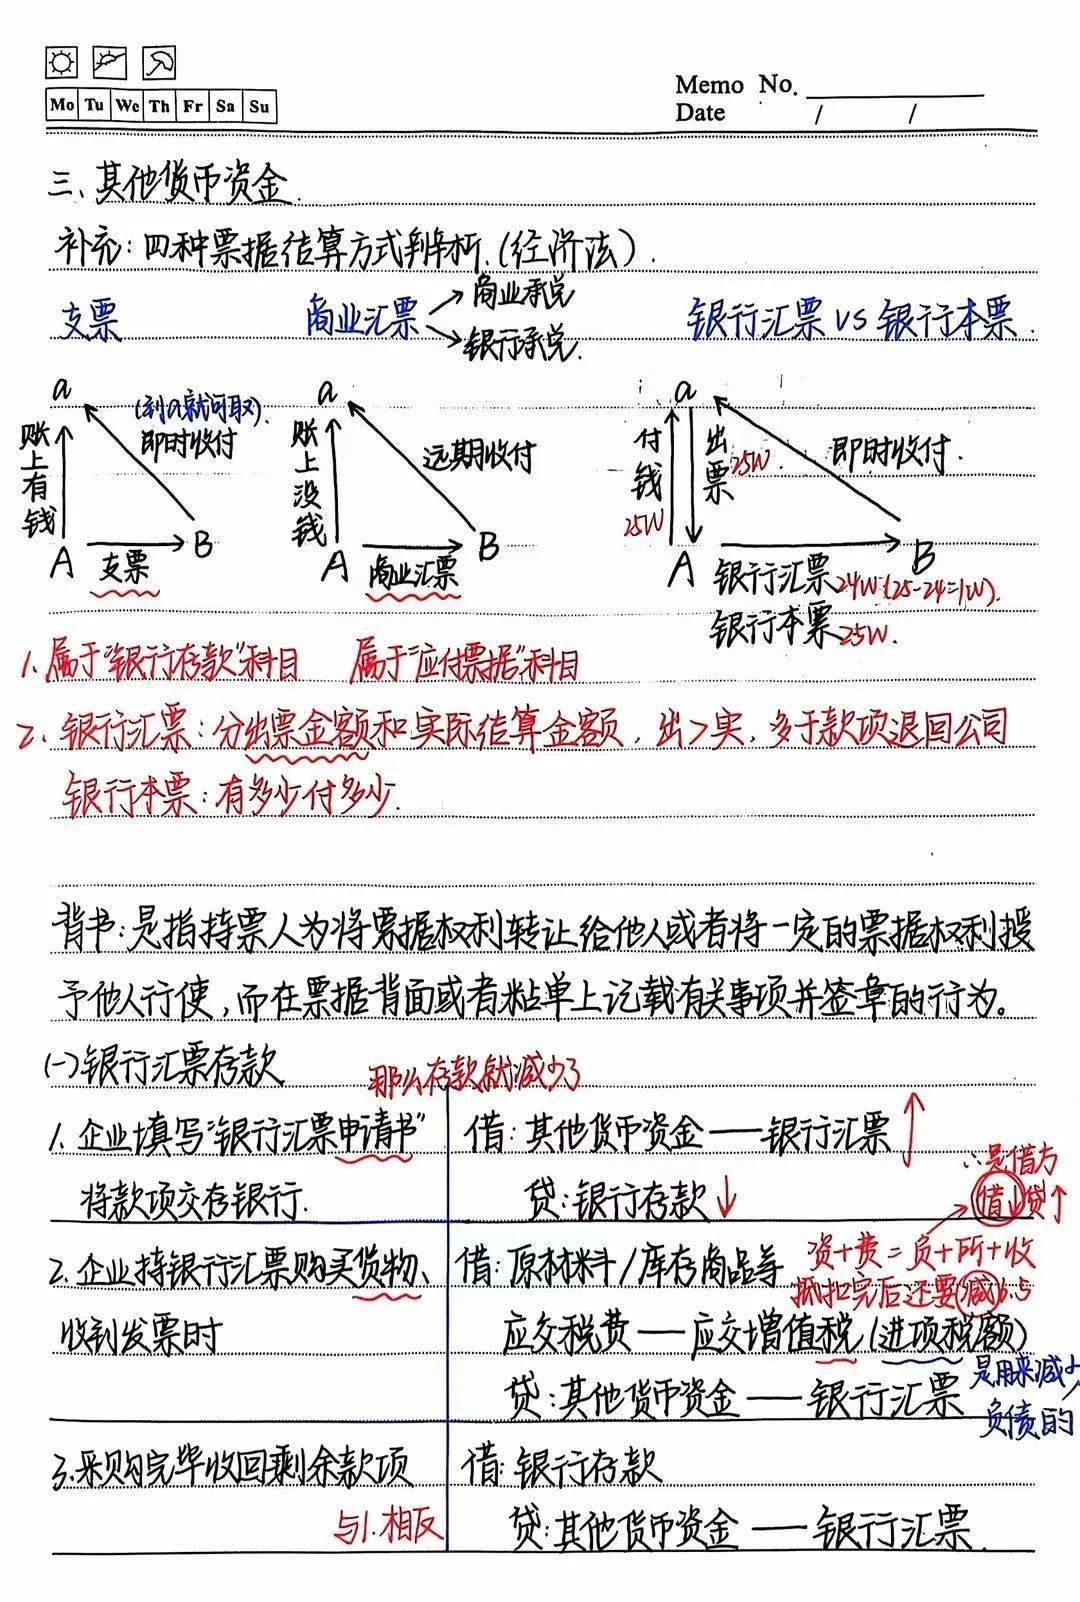 Memo No.
Mo Tu We Th Fr Sa Su
Date / /
三、其他货币资金.
补充:四种票据结算方式辨析.(经济法).
支票 商业汇票 商业承兑 银行承兑. 银行汇票 VS 银行本票.
a (到a就可取). 即时收付 账上有钱 A 支票 B
a 账上没钱 远期收付 A 商业汇票 B
a 付钱 25W 出票 25W. 即时收付. A B
银行汇票24W.(25-24=1W).
银行本票25W.
1.属于“银行存款”科目 属于“应付票据”科目
2、银行汇票:分出票金额和实际结算金额,出>实,多于款项退回公司
银行本票:有多少付多少.
背书:是指持票人为将票据权利转让给他人或者将一定的票据权利授
予他人行使,而在票据背面或者粘单上记载有关事项并签章的行为。
(一)银行汇票存款 那么存款就减少了
1.企业填写“银行汇票申请书” 借:其他货币资金——银行汇票↑
∴是借方
将款项交存银行. 贷:银行存款↓ 借↓贷↑
2.企业持银行汇票购买货物、 借:原材料/库存商品等 资+费=负+所+收
抵扣完后还要(减)6.5
收到发票时 应交税费——应交增值税(进项税额)
贷:其他货币资金——银行汇票 是用来减少
负债的
3.采购完毕收回剩余款项 借:银行存款
与1.相反 贷:其他货币资金——银行汇票.